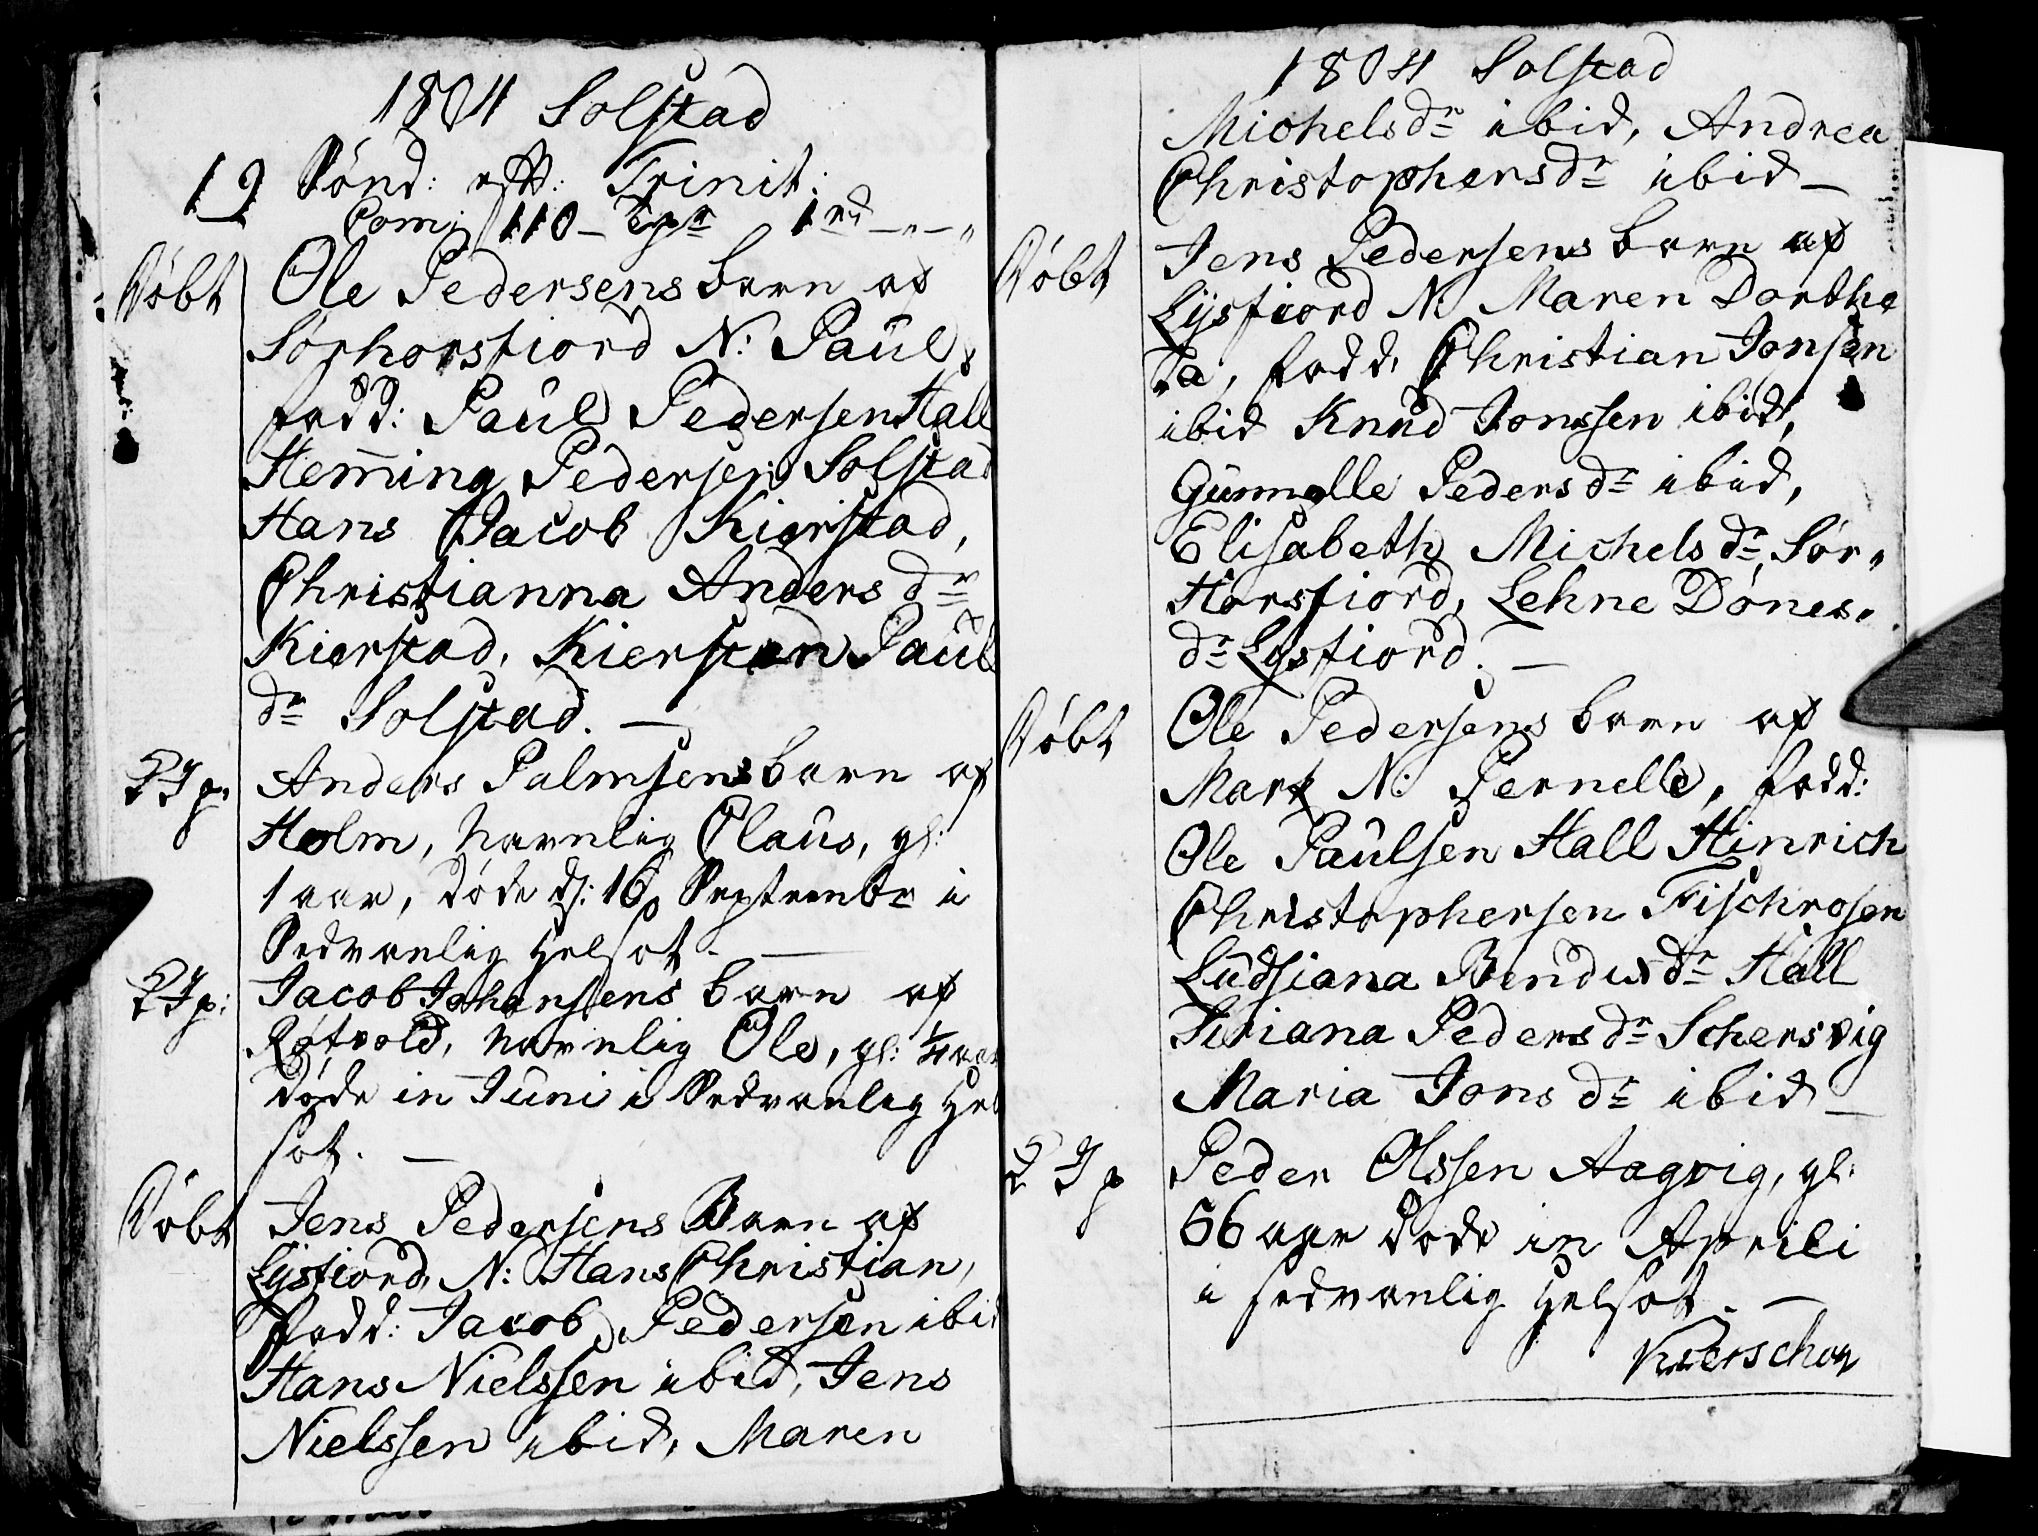 1804 Solstad
19 Sönd: eft: Trinit:
Com: 110 – 1 rd –„–„
Döbt Ole Pedersens barn af
Sörhorsfiord N: Paul,
fadd: Paul Pedersen Hall
Hem̄ing Pedersen Solstad
Hans Jacob Kierstad,
Christianna Anders dr
Kierstad, Kiersten Pauls
dr Solstad. —
Anders Palmsens barn af
Holm, navnlig Olaus, gl:
1 aar, döde d: 16 Septembr i
Sedvanlig Helsot. —
Jacob Johansens barn af
Røtvold, navnlig Ole, gl: ¼ aar
döde in Juni i Sedvanlig Hel
sot. —
Döbt Jens Pedersens Barn af
Lysfiord, N: Hans Christian,
fadd: Jacob Pedersen ibid
Hans Nielssen ibid, Jens
Nielssen ibid, Maren
1804 Solstad
Michelsdr ibid, Andrea
Christophersdr ibid —
Döbt Jens Pedersens barn af
Lysfiord N: Maren Dorthe
a, fadd: Christian Jonsen
ibid Knud Jonssen ibid,
Gunnelle Peders dr ibid,
Elisabeth Michels dr Sör„
Horsfiord, Lehne Dönes„
dr Lysfiord. —
Döbt Ole Pedersens barn af
Mark N: Pernelle, fadd:
Ole Paulsen Hall Hinrich
Christophersen Fischrosen
Ludsiana Bendixdr Hall
Siriana Peders dr Schersvig
Maria Jons dr ibid —
Peder Olssen Aagvig, gl:
56 aar döde in Aprili
i sedvanlig Helsot. —